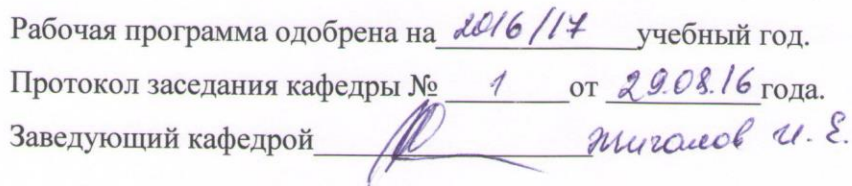 Рабочая программа одобрена на 2016/17 учебный год.
Протокол заседания кафедры № 1 от 29.08.16 года.
Заведующий кафедрой Жигалов И. Е.